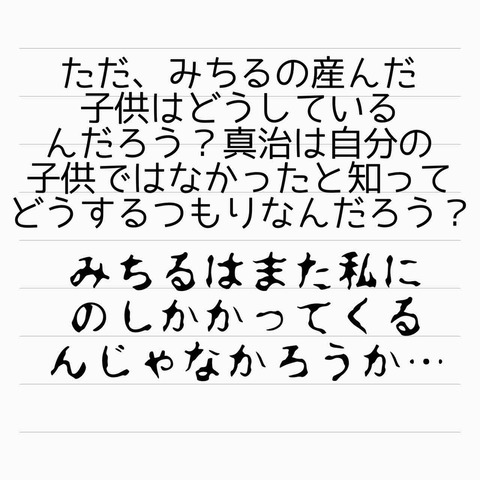 ただ、みちるの産んだ
子供はどうしている
んだろう？真治は自分の
子供ではなかったと知って
どうするつもりなんだろう？
みちるはまた私に
のしかかってくる
んじゃなかろうか…